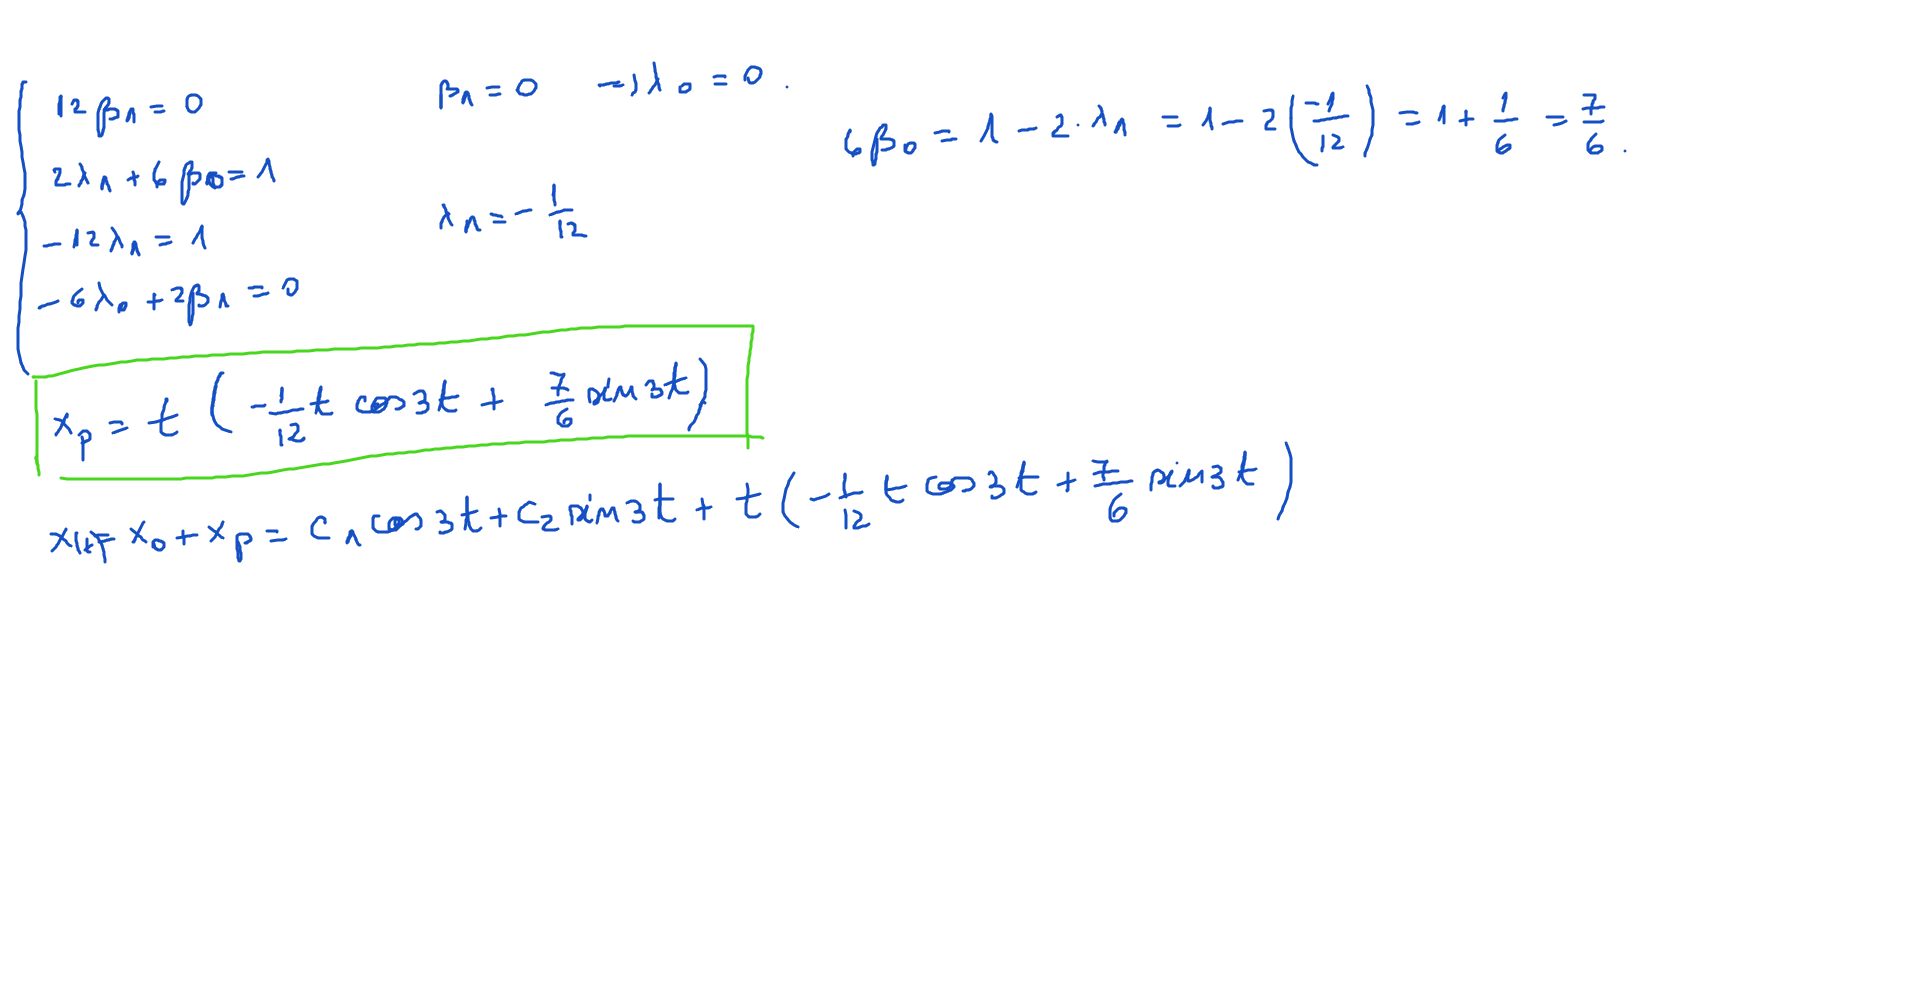 12β₁ = 0
2λ₁ + 6β₀ = 1
-12λ₁ = 1
-6λ₀ + 2β₁ = 0
β₁ = 0 → λ₀ = 0.
λ₁ = - 1/12
6β₀ = 1 - 2·λ₁ = 1 - 2(-1/12) = 1 + 1/6 = 7/6.
xₚ = t ( -1/12 t cos3t + 7/6 sin3t )
x(t) = x₀ + xₚ = c₁ cos3t + c₂ sin3t + t ( -1/12 t cos3t + 7/6 sin3t )